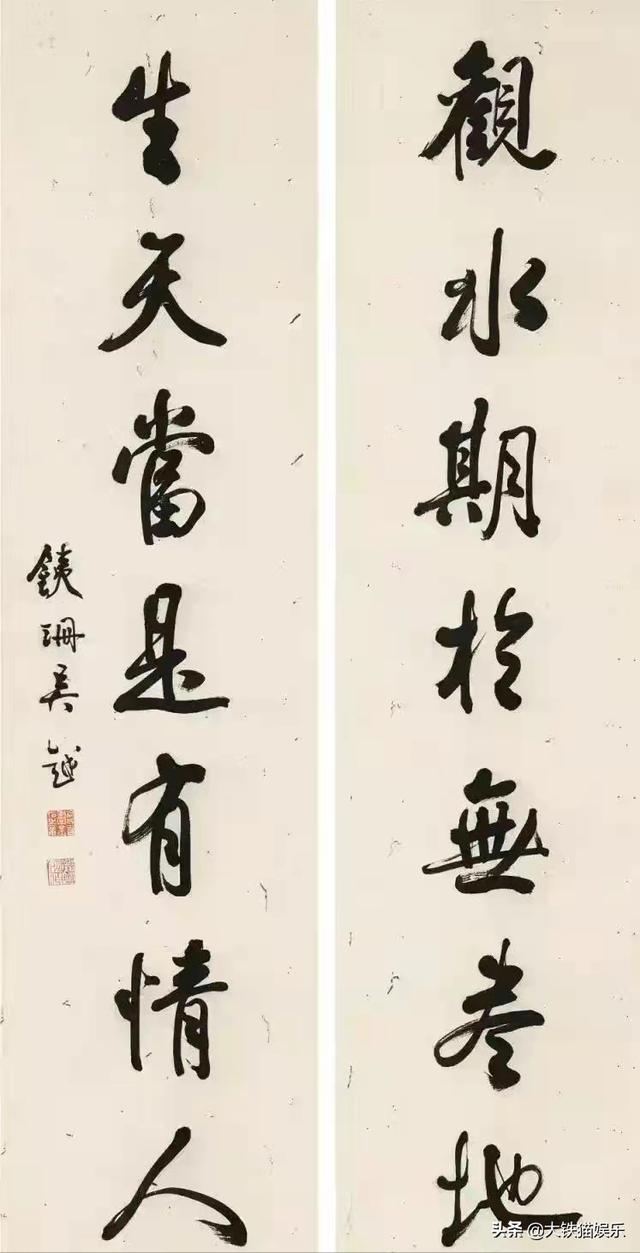 觀水期於無地
生天當是有情人
銕珊吳
头条 @大铁猫娱乐